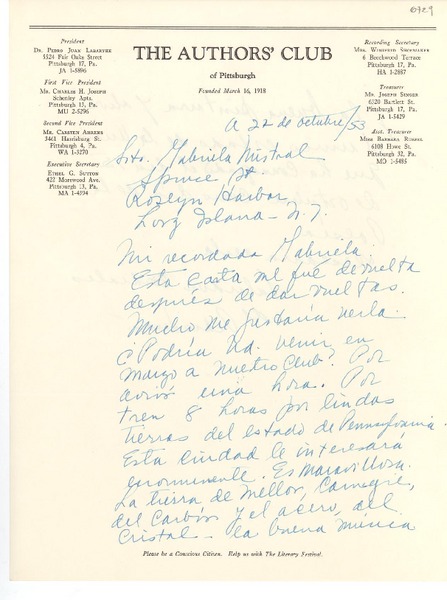 6729
THE AUTHORS' CLUB
of Pittsburgh
Founded March 16, 1918
President
DR. PEDRO JUAN LABARTHE
5324 Fair Oaks Street
Pittsburgh 17, Pa.
JA 1-5896
First Vice President
MR. CHARLIE H. JOSEPH
Schenley Apts.
Pittsburgh 13, Pa.
MU 2-5296
Second Vice President
MR. CARSTEN AHRENS
3461 Harrisburg St.
Pittsburgh 4, Pa.
WA 1-3270
Executive Secretary
ETHEL G. SUTTON
422 Morewood Ave.
Pittsburgh 13, Pa.
MA 1-4594
Recording Secretary
MRS. WINIFRED
6 Beechwood Terrace
Pittsburgh 17, Pa.
HA 1-2887
Treasurer
MR. JOSEPH
6320 Bartlett St.
Pittsburgh 17, Pa.
JA 1-5429
Asst. Treasurer
MISS BARBARA RUSSELL
6108 Howe St.
Pittsburgh 32, Pa.
MO 1-5485
A 22 de octubre/53
Srta. Gabriela Mistral
Spruce St.
Roslyn Harbor,
Long Island - N.Y.
Mi recordada Gabriela:
Esta carta me fué devuelta
después de dar vueltas.
Mucho me gustaría verla.
¿Podría Ud. venir en
marzo a nuestro Club? Por
avión una hora. Por
tren 8 horas por lindas
tierras del estado de Pennsylvania.
Esta ciudad le interesará
enormemente. Es maravillosa.
La tierra de Mellon, Carnegie,
del Carbón y el acero, del
Cristal - la buena música
Please be a Conscious Citizen. Help us with The Literary Festival.